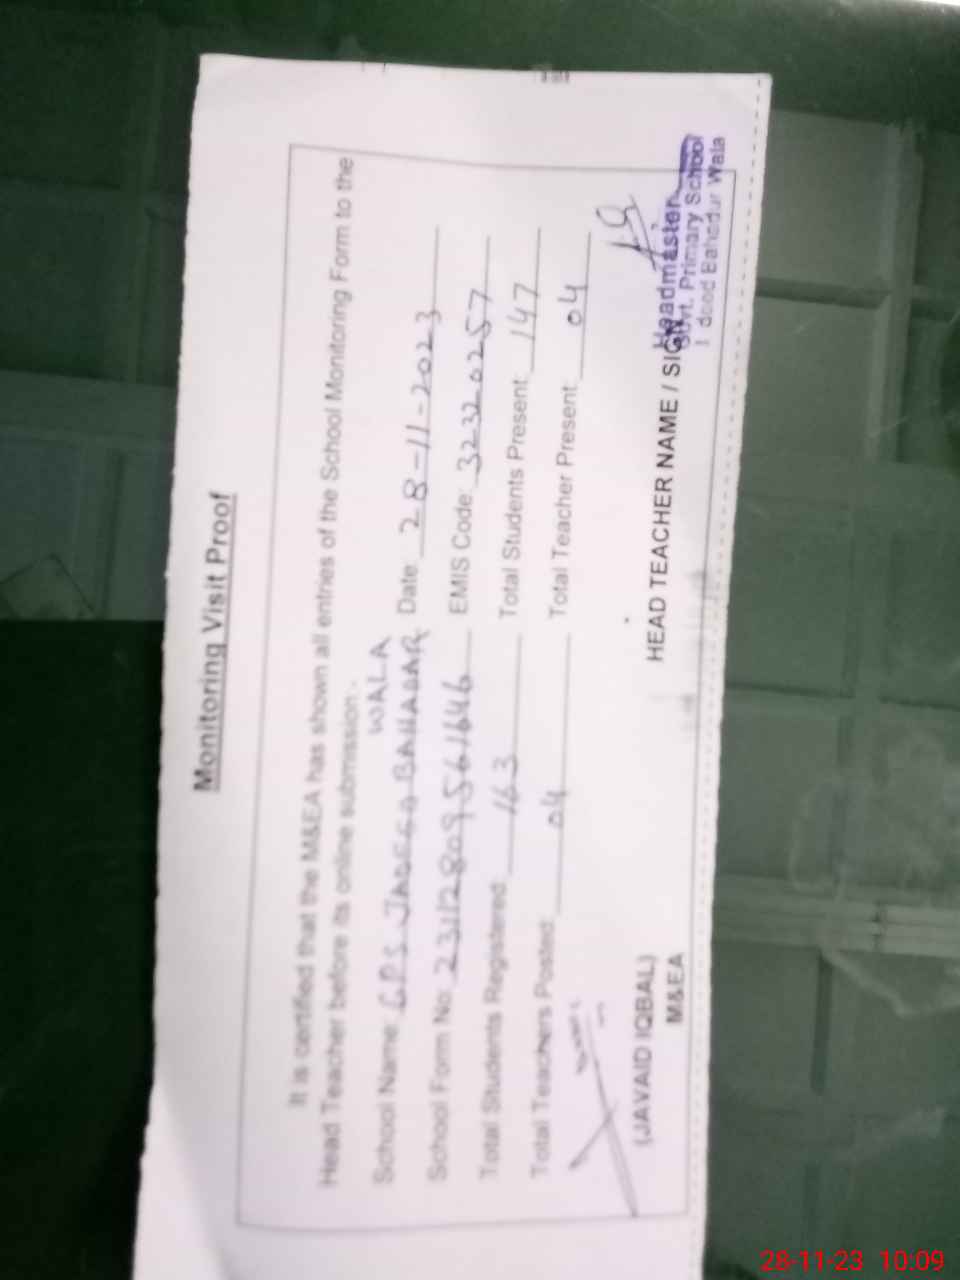 Monitoring Visit Proof
It is certified that the M&EA has shown all entries of the School Monitoring Form to the
Head Teacher before its online submission.
WALA
School Name: G.P.S BAHADAR Date: 28-11-2023
School Form No: 23112809561646 EMIS Code: 32320257
Total Students Registered: 163 Total Students Present: 147
Total Teachers Posted: 04 Total Teacher Present: 04
(JAVAID IQBAL)
M&EA
HEAD TEACHER NAME / SIGN
Headmaster
Govt. Primary School
Bahadur Wala
28-11-23 10:09